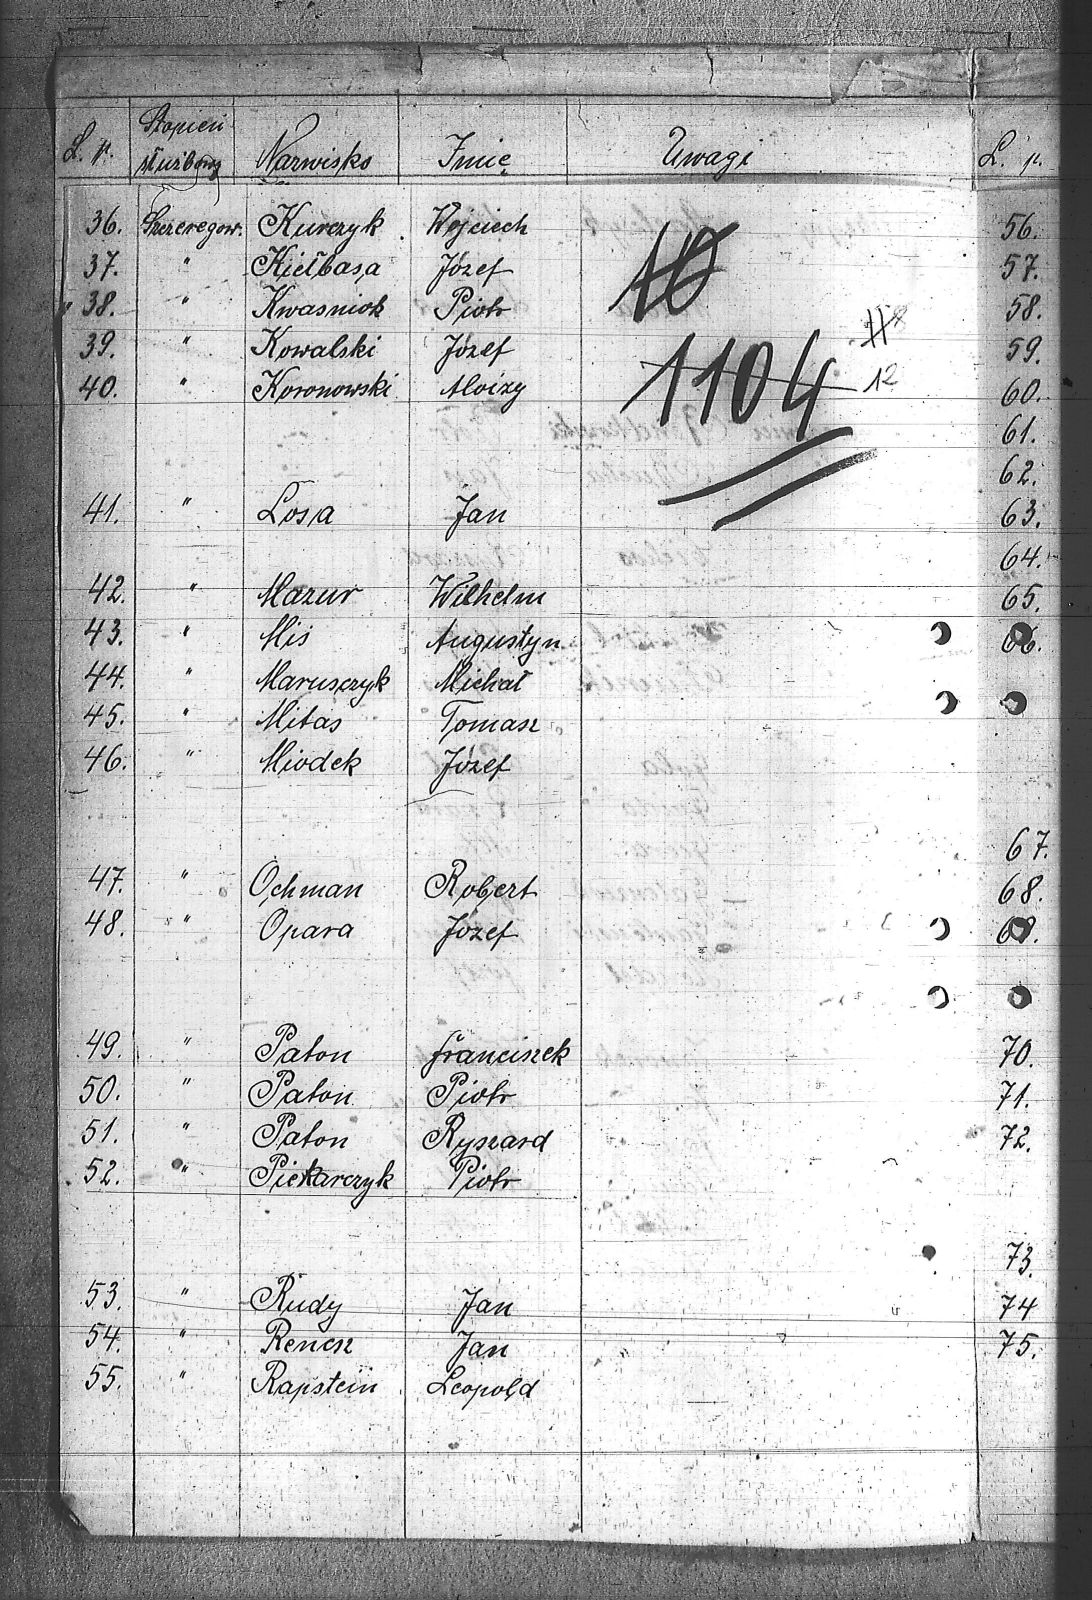 L. p. Stopień służbowy Nazwisko Imię Uwagi L. p.
36. Szeregow. Kurczyk Wojciech 56.
37. " Kiełbasa Józef 57.
38. " Kwasniok Piotr 58.
39. " Kowalski Józef 59.
40. " Koronowski Aloizy 60.
1104
12
61.
62.
41. " Losa Jan 63.
64.
42. " Mazur Wilhelm 65.
43. " Mis Augustyn 66.
44. " Marusczyk Michał
45. " Mitas Tomasz
46. " Miodek Józef
67.
47. " Ochman Robert 68.
48. " Opara Józef 69.
49. " Paton Franciszek 70.
50. " Paton Piotr 71.
51. " Paton Ryszard 72.
52. " Piekarczyk Piotr
73.
53. " Rudy Jan 74
54. " Rencsz Jan 75.
55. " Rapstein Leopold